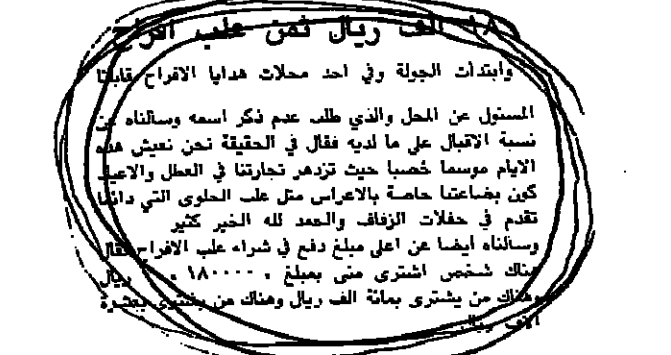 ١٨٠ الف ريال ثمن علب افراح
وابتدأت الجولة وفي احد محلات هدايا الافراح قابلنا
المسئول عن المحل والذي طلب عدم ذكر اسمه وسألناه عن
نسبة الاقبال على ما لديه فقال في الحقيقة نحن نعيش هذه
الايام موسما خصبا حيث تزدهر تجارتنا في العطل والاعياد
كون بضاعتنا خاصة بالاعراس مثل علب الحلوى التي دائما
تقدم في حفلات الزفاف والحمد لله الخير كثير
وسألناه أيضا عن اعلى مبلغ دفع في شراء علب الافراح فقال
هناك شخص اشترى منى بمبلغ ١٨٠٠٠٠ ريال
وهناك من يشترى بمائة الف ريال وهناك من يشترى بعشرة
الاف ريال